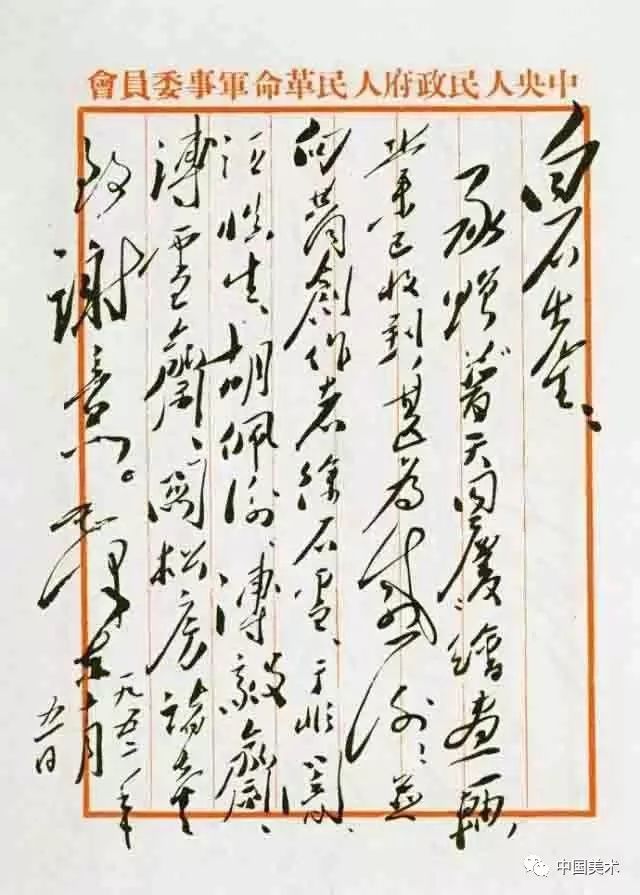 中央人民政府人民革命軍事委員會
白石先生：
承贈“普天同慶”繪畫一軸，
業已收到，甚為感謝！並
向共同創作者徐石雪、于非闇、
汪慎生、胡佩衡、溥毅齋、
溥雪齋、關松房諸先生
致謝意。毛澤東
一九五二年
十月
五日
中国美术